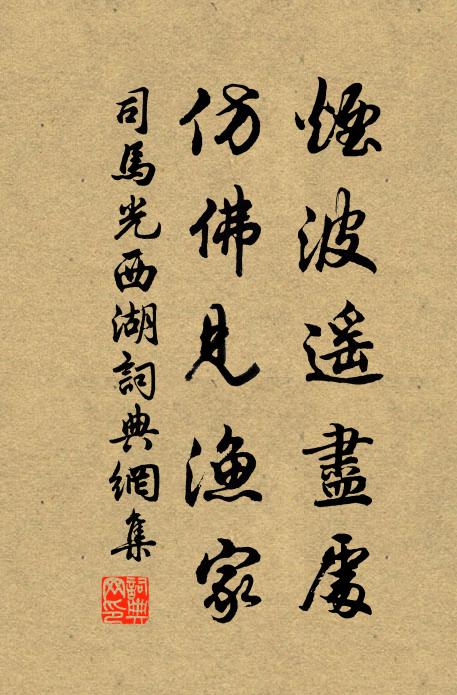 煙波遥盡處
仿佛見漁家
司馬光西湖詞典網集
詞典網印